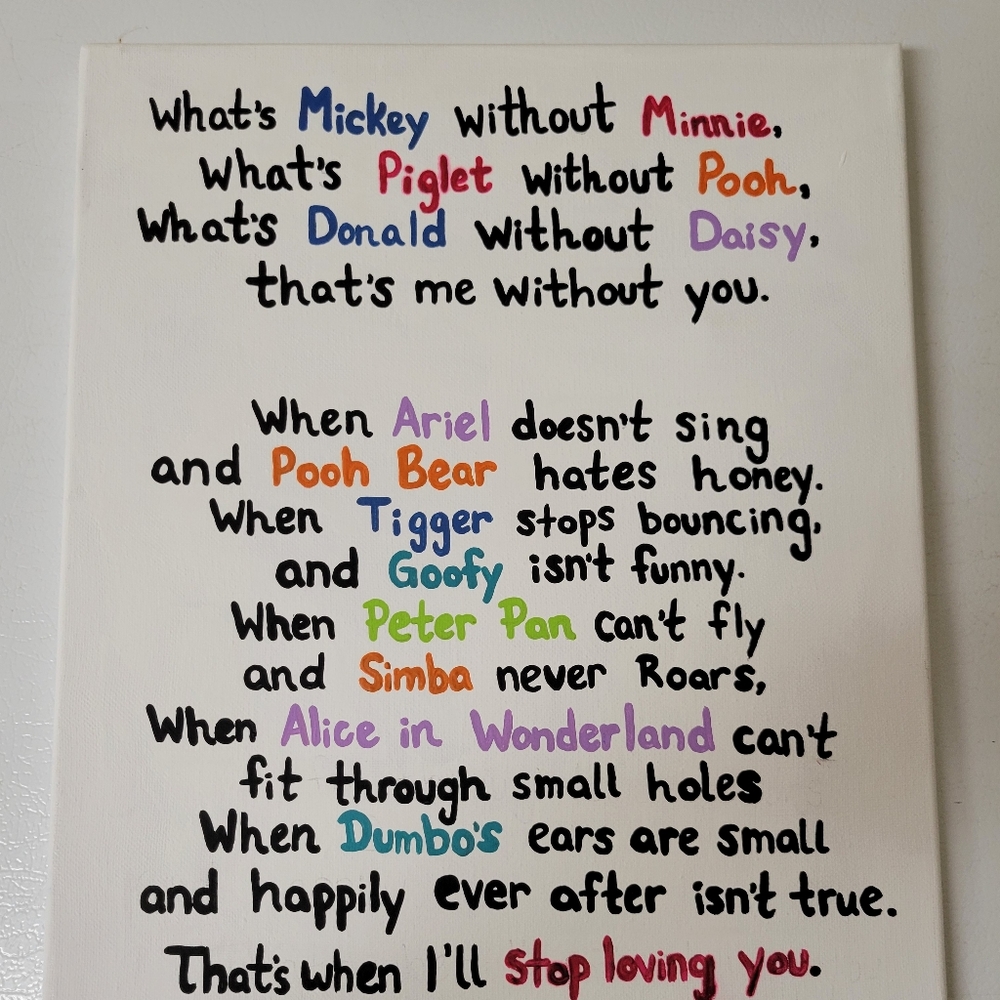 What's Mickey without Minnie,
What's Piglet without Pooh,
What's Donald without Daisy,
that's me without you.
When Ariel doesn't sing
and Pooh Bear hates honey.
When Tigger stops bouncing,
and Goofy isn't funny.
When Peter Pan can't fly
and Simba never Roars,
When Alice in Wonderland can't
fit through small holes
When Dumbo's ears are small
and happily ever after isn't true.
That's when I'll stop loving you.